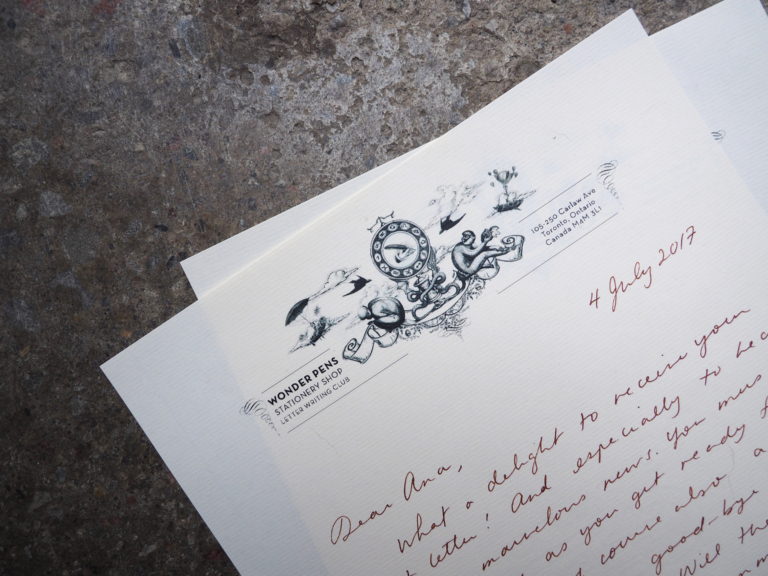 WONDER PENS
STATIONERY SHOP
LETTER WRITING CLUB
105-250 Carlaw Ave
Toronto, Ontario
Canada M4M 3L1
4 July 2017
Dear Ana,
What a delight to receive your
letter! And especially to
marvelous news. You
as you get ready
course also a
good-bye
Will